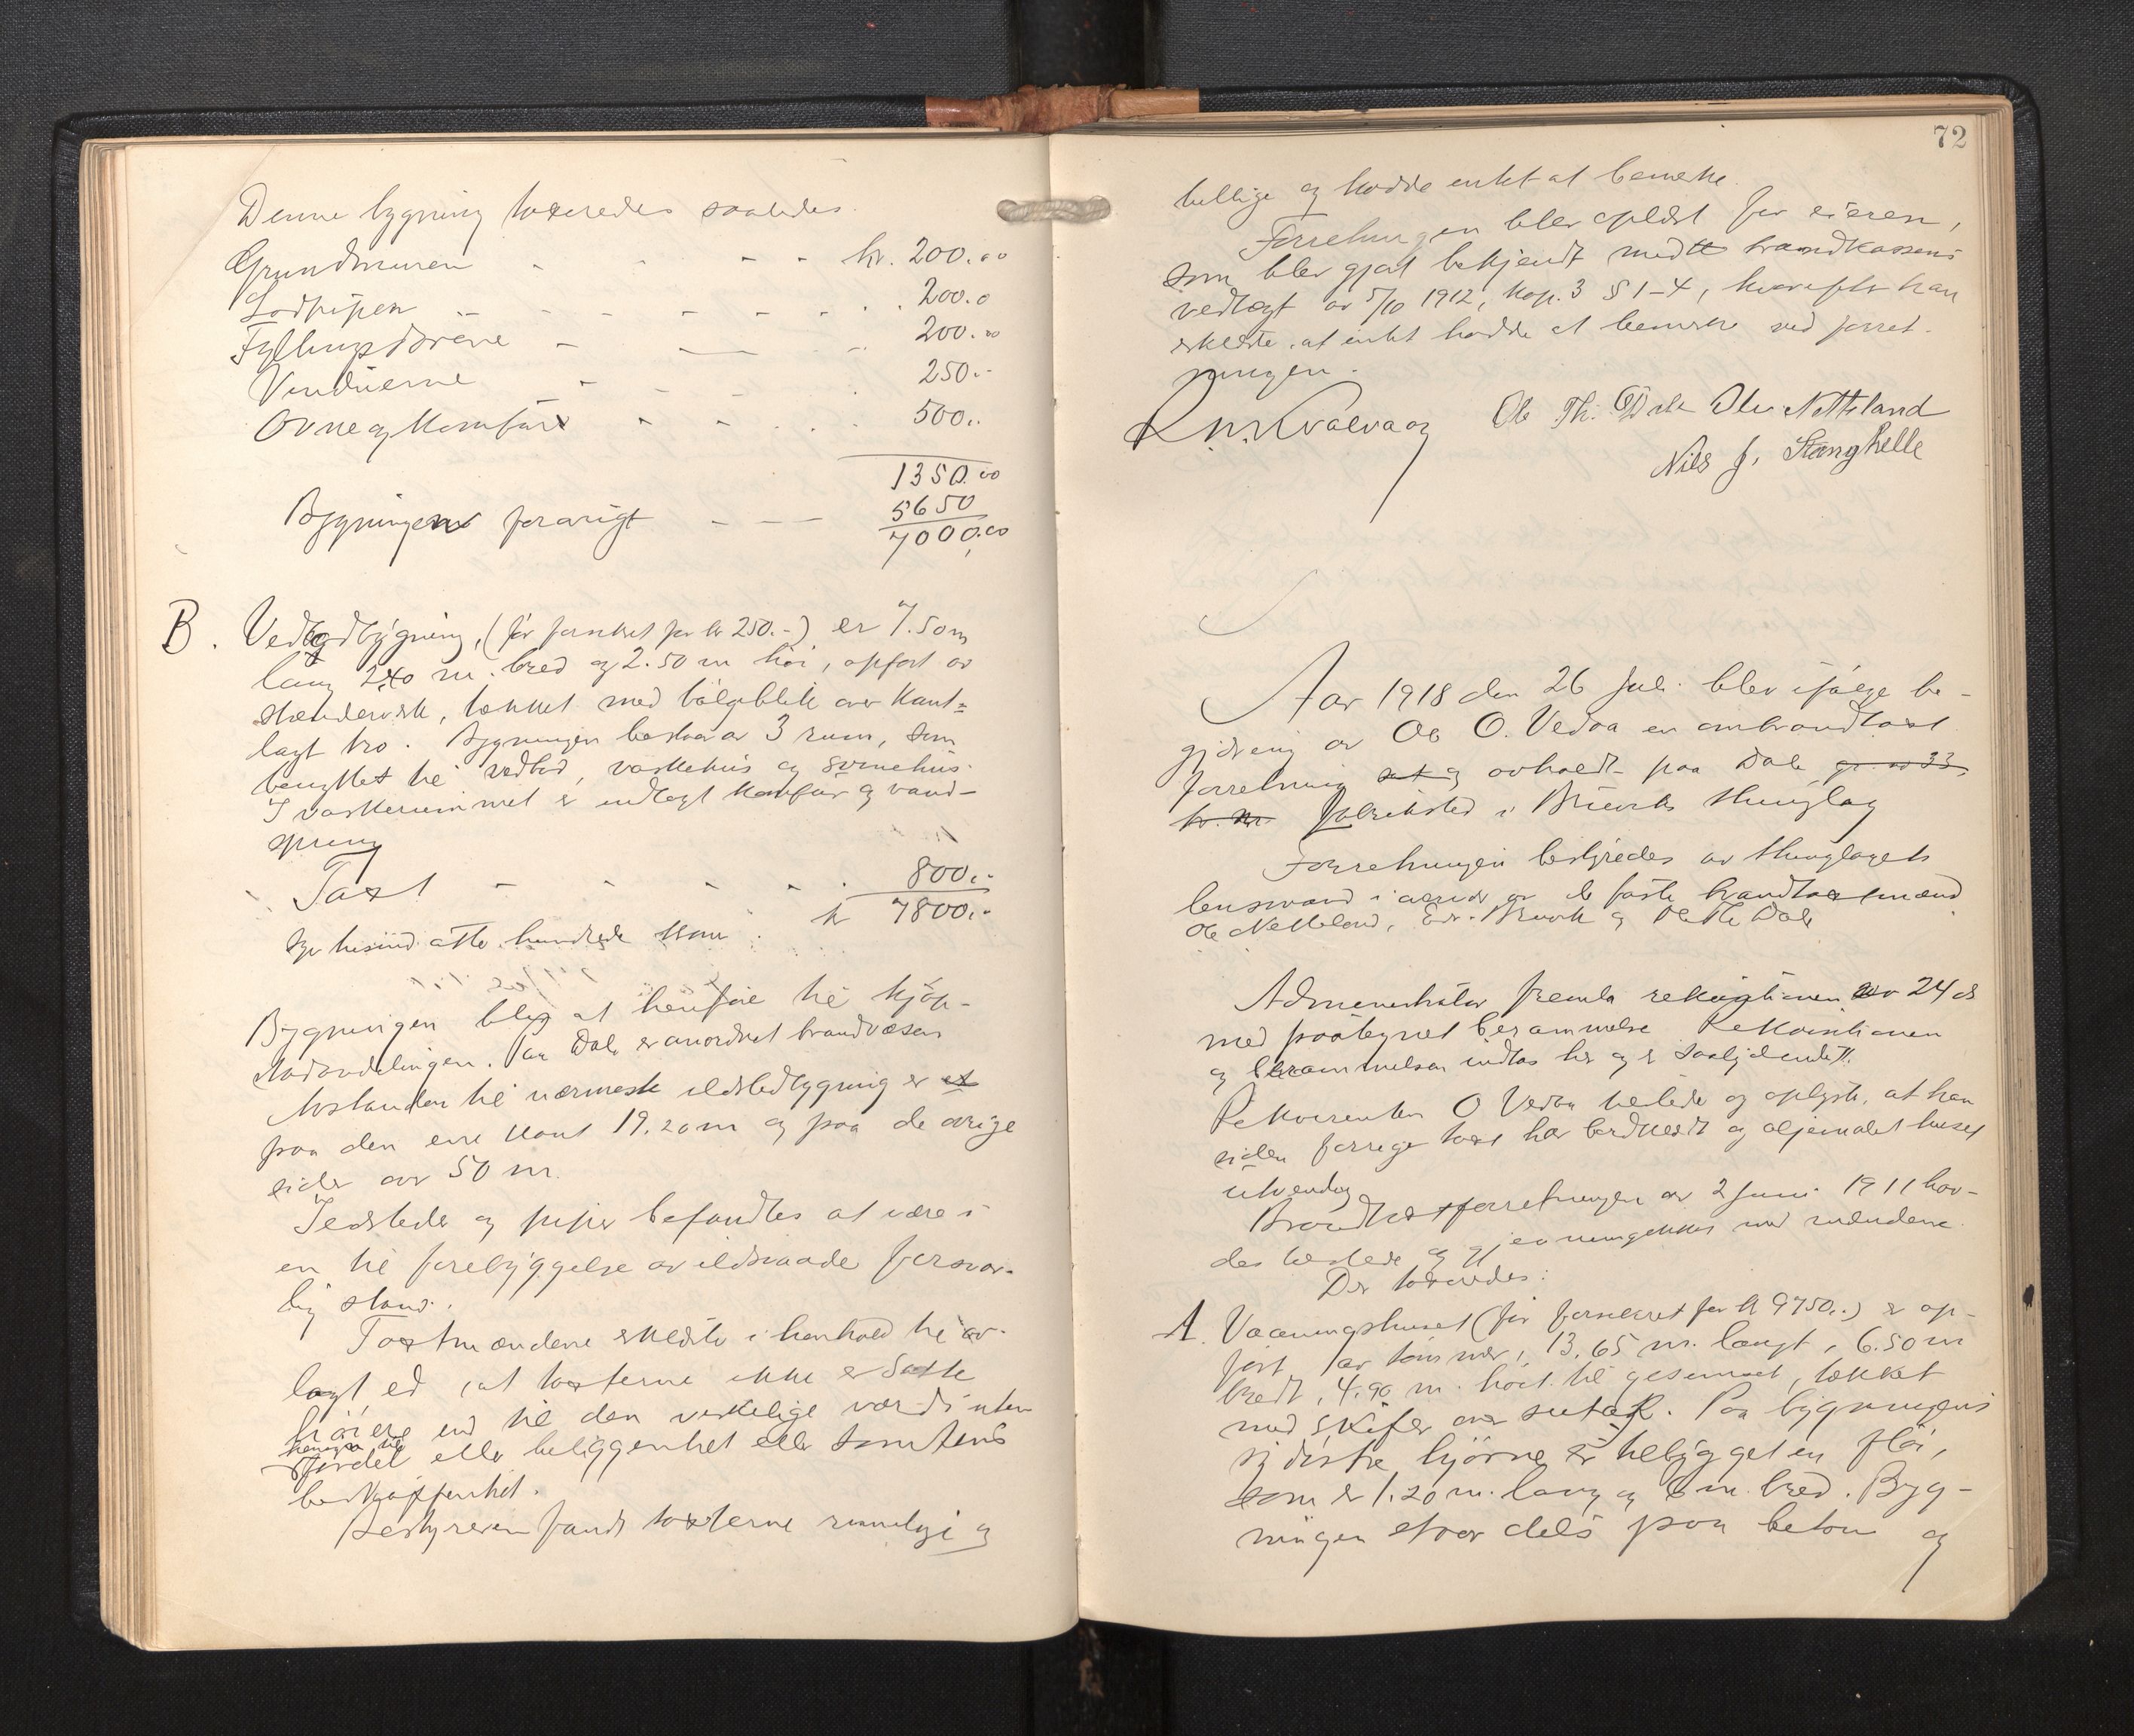 Denne bygning taxeredes saaledes.
Grundmuren - - - - kr. 200.00
Lodpipen - - - - - - . 200.0
Fyllingsdørene - - - 200.00
Vinduerne - - - . 250.-
Ovne og Komfur - - . . . 500..
1350.00
Bygningen forøvrigt - - - 5650
7000.00
B. Vedbodbygning, (før forsikret for kr 250.-) er 7.50 m
lang 2.40 m. bred og 2.50 m høi, opført av
stenderverk, tækket med bølgeblik over kant=
lagt bro. Bygningen bestaar av 3 rum, som
benyttes til vedbod, vaskehus og svinehus.
I vaskerummet er indlagt Komfur og vand-
spring
Taxt - - - - . 800.-
kr 7800.-
Syv tusind otte hundrede Kron
Bygningen blev at henføre til kjøp-
stadavdelingen. Paa Dale er anordnet brandvæsen
Avstanden til nærmeste ildstedbygning er
paa den ene Kant 19.20 m og paa de øvrige
sider over 50 m.
Ildsteder og piper befandtes at være i
en til forebyggelse av ildsvaade forsvar-
lig stand.
Taxtmændene erklærte i henhold til av-
lagt ed, at taxterne ikke er satte
høiere end til den virkelige værdi uten
hensyn til
fordel eller beliggenhet eller tomtens
beskaffenhet.
Bestyreren fandt taxterne rimelige og
72
billige og hadde intet at bemerke.
Forretningen blev oplæst for eieren,
som blev gjort bekjendt med brandkassens
vedtægt av 5/10 1912, kap. 3 § 1-4, hvorefter han
erklærte at intet hadde at bemerke ved forret-
ningen.
R. M. Kvalvaag Ole Th. Dale Ole Netteland
Nils J. Stanghelle
Aar 1918 den 26 Juli blev ifølge be-
gjæring av Ole O. Vedaa en ombrandtaxt
forretning sat og avholdt paa Dale gr. no 33,
br. nr. Fabriksted i Bruvik thinglag
Forretningen bestyredes av thinglagets
lensmand i nærvær av de faste brandtaxtmænd
Ole Netteland, Edv. Bruvik og Ole Th Dale
Administrator fremla rekvisitionen av 24 ds
med paategnet berammelse Rekvisitionen
og berammelsen indtas her og er saalydende:
Rekvirenten O Vedaa møtte og oplyste, at han
siden forrige taxt har bordklædt og oljemalet huset
utvendig
Brandtaxtforretningen av 2 Juni 1911 hav-
des tilstede og gjennemgikkes med mændene.
Der taxeredes:
A. Vaaningshuset (før forsikret for kr 9750..) er op-
ført av tømmer, 13.65 m. langt, 6.50 m
bredt, 4.90 m. høit til gesimset, tækket
med skifer over sutak. Paa bygningens
sydøstre hjørne er tilbygget en fløi,
som er 1.20 m. lang og 6 m. bred. Byg-
ningen staar dels paa beton og